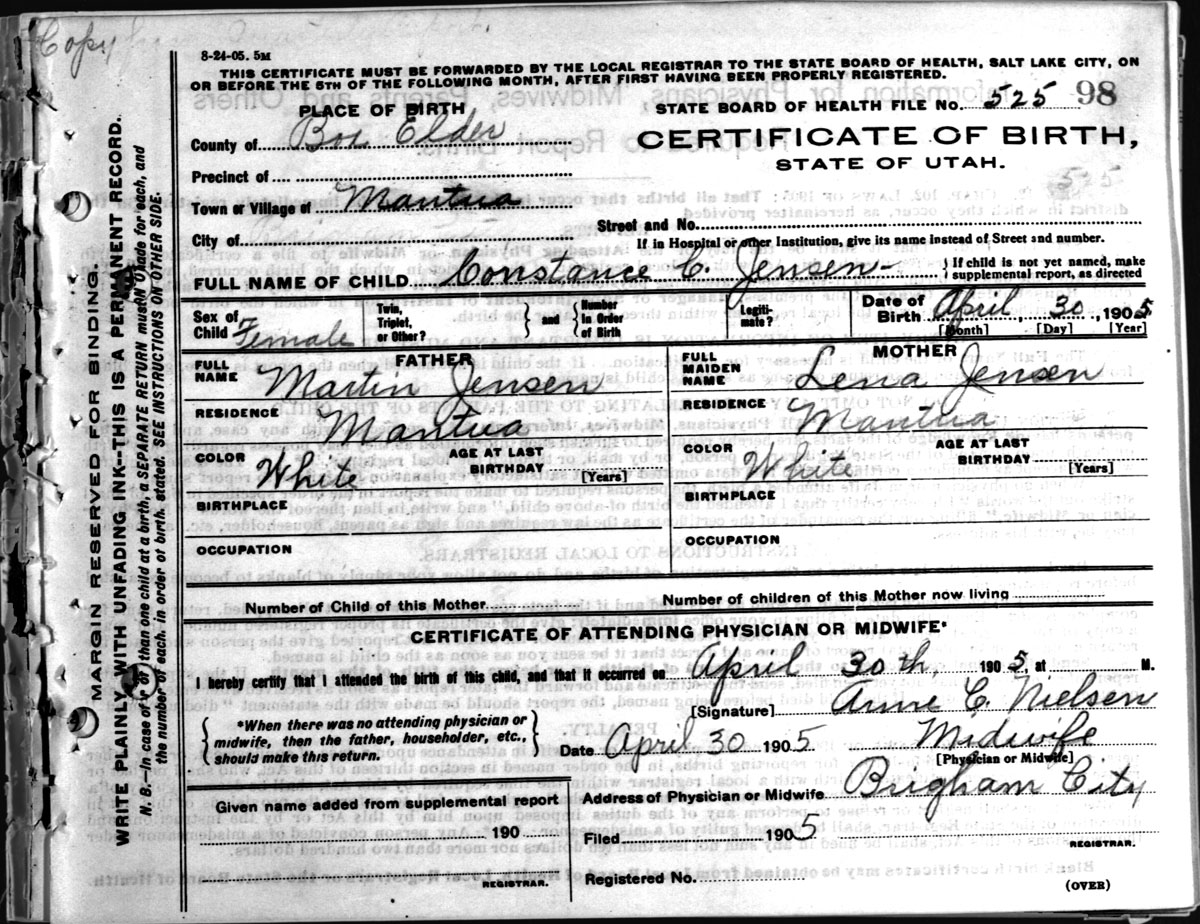 Copy
8-24-05. 5M
THIS CERTIFICATE MUST BE FORWARDED BY THE LOCAL REGISTRAR TO THE STATE BOARD OF HEALTH, SALT LAKE CITY, ON
OR BEFORE THE 5TH OF THE FOLLOWING MONTH, AFTER FIRST HAVING BEEN PROPERLY REGISTERED.
PLACE OF BIRTH
STATE BOARD OF HEALTH FILE No. 525 98
County of Box Elder
CERTIFICATE OF BIRTH,
STATE OF UTAH.
Precinct of
525
Town or Village of Mantua
Street and No.
City of
If in Hospital or other Institution, give its name instead of Street and number.
FULL NAME OF CHILD Constance C. Jensen
} If child is not yet named, make
supplemental report, as directed
Sex of Child Female
Twin, Triplet, or Other?
} and {
Number in Order of Birth
Legiti-mate?
Date of Birth April 30, 1905
[Month] [Day] [Year]
FATHER
FULL NAME Martin Jensen
RESIDENCE Mantua
COLOR White
AGE AT LAST BIRTHDAY
[Years]
BIRTHPLACE
OCCUPATION
MOTHER
FULL MAIDEN NAME Lena Jensen
RESIDENCE Mantua
COLOR White
AGE AT LAST BIRTHDAY
[Years]
BIRTHPLACE
OCCUPATION
Number of Child of this Mother
Number of children of this Mother now living
CERTIFICATE OF ATTENDING PHYSICIAN OR MIDWIFE*
I hereby certify that I attended the birth of this child, and that it occurred on April 30th, 1905, at M.
{ *When there was no attending physician or
midwife, then the father, householder, etc.,
should make this return. }
[Signature] Anne C. Nielsen
Date April 30 1905
Midwife
[Physician or Midwife]
Given name added from supplemental report
190
REGISTRAR.
Address of Physician or Midwife Brigham City
Filed 1905
REGISTRAR.
Registered No.
(OVER)
MARGIN RESERVED FOR BINDING.
WRITE PLAINLY WITH UNFADING INK--THIS IS A PERMANENT RECORD.
N. B.--In case of more than one child at a birth, a SEPARATE RETURN must be made for each, and
the number of each, in order of birth, stated. SEE INSTRUCTIONS ON OTHER SIDE.